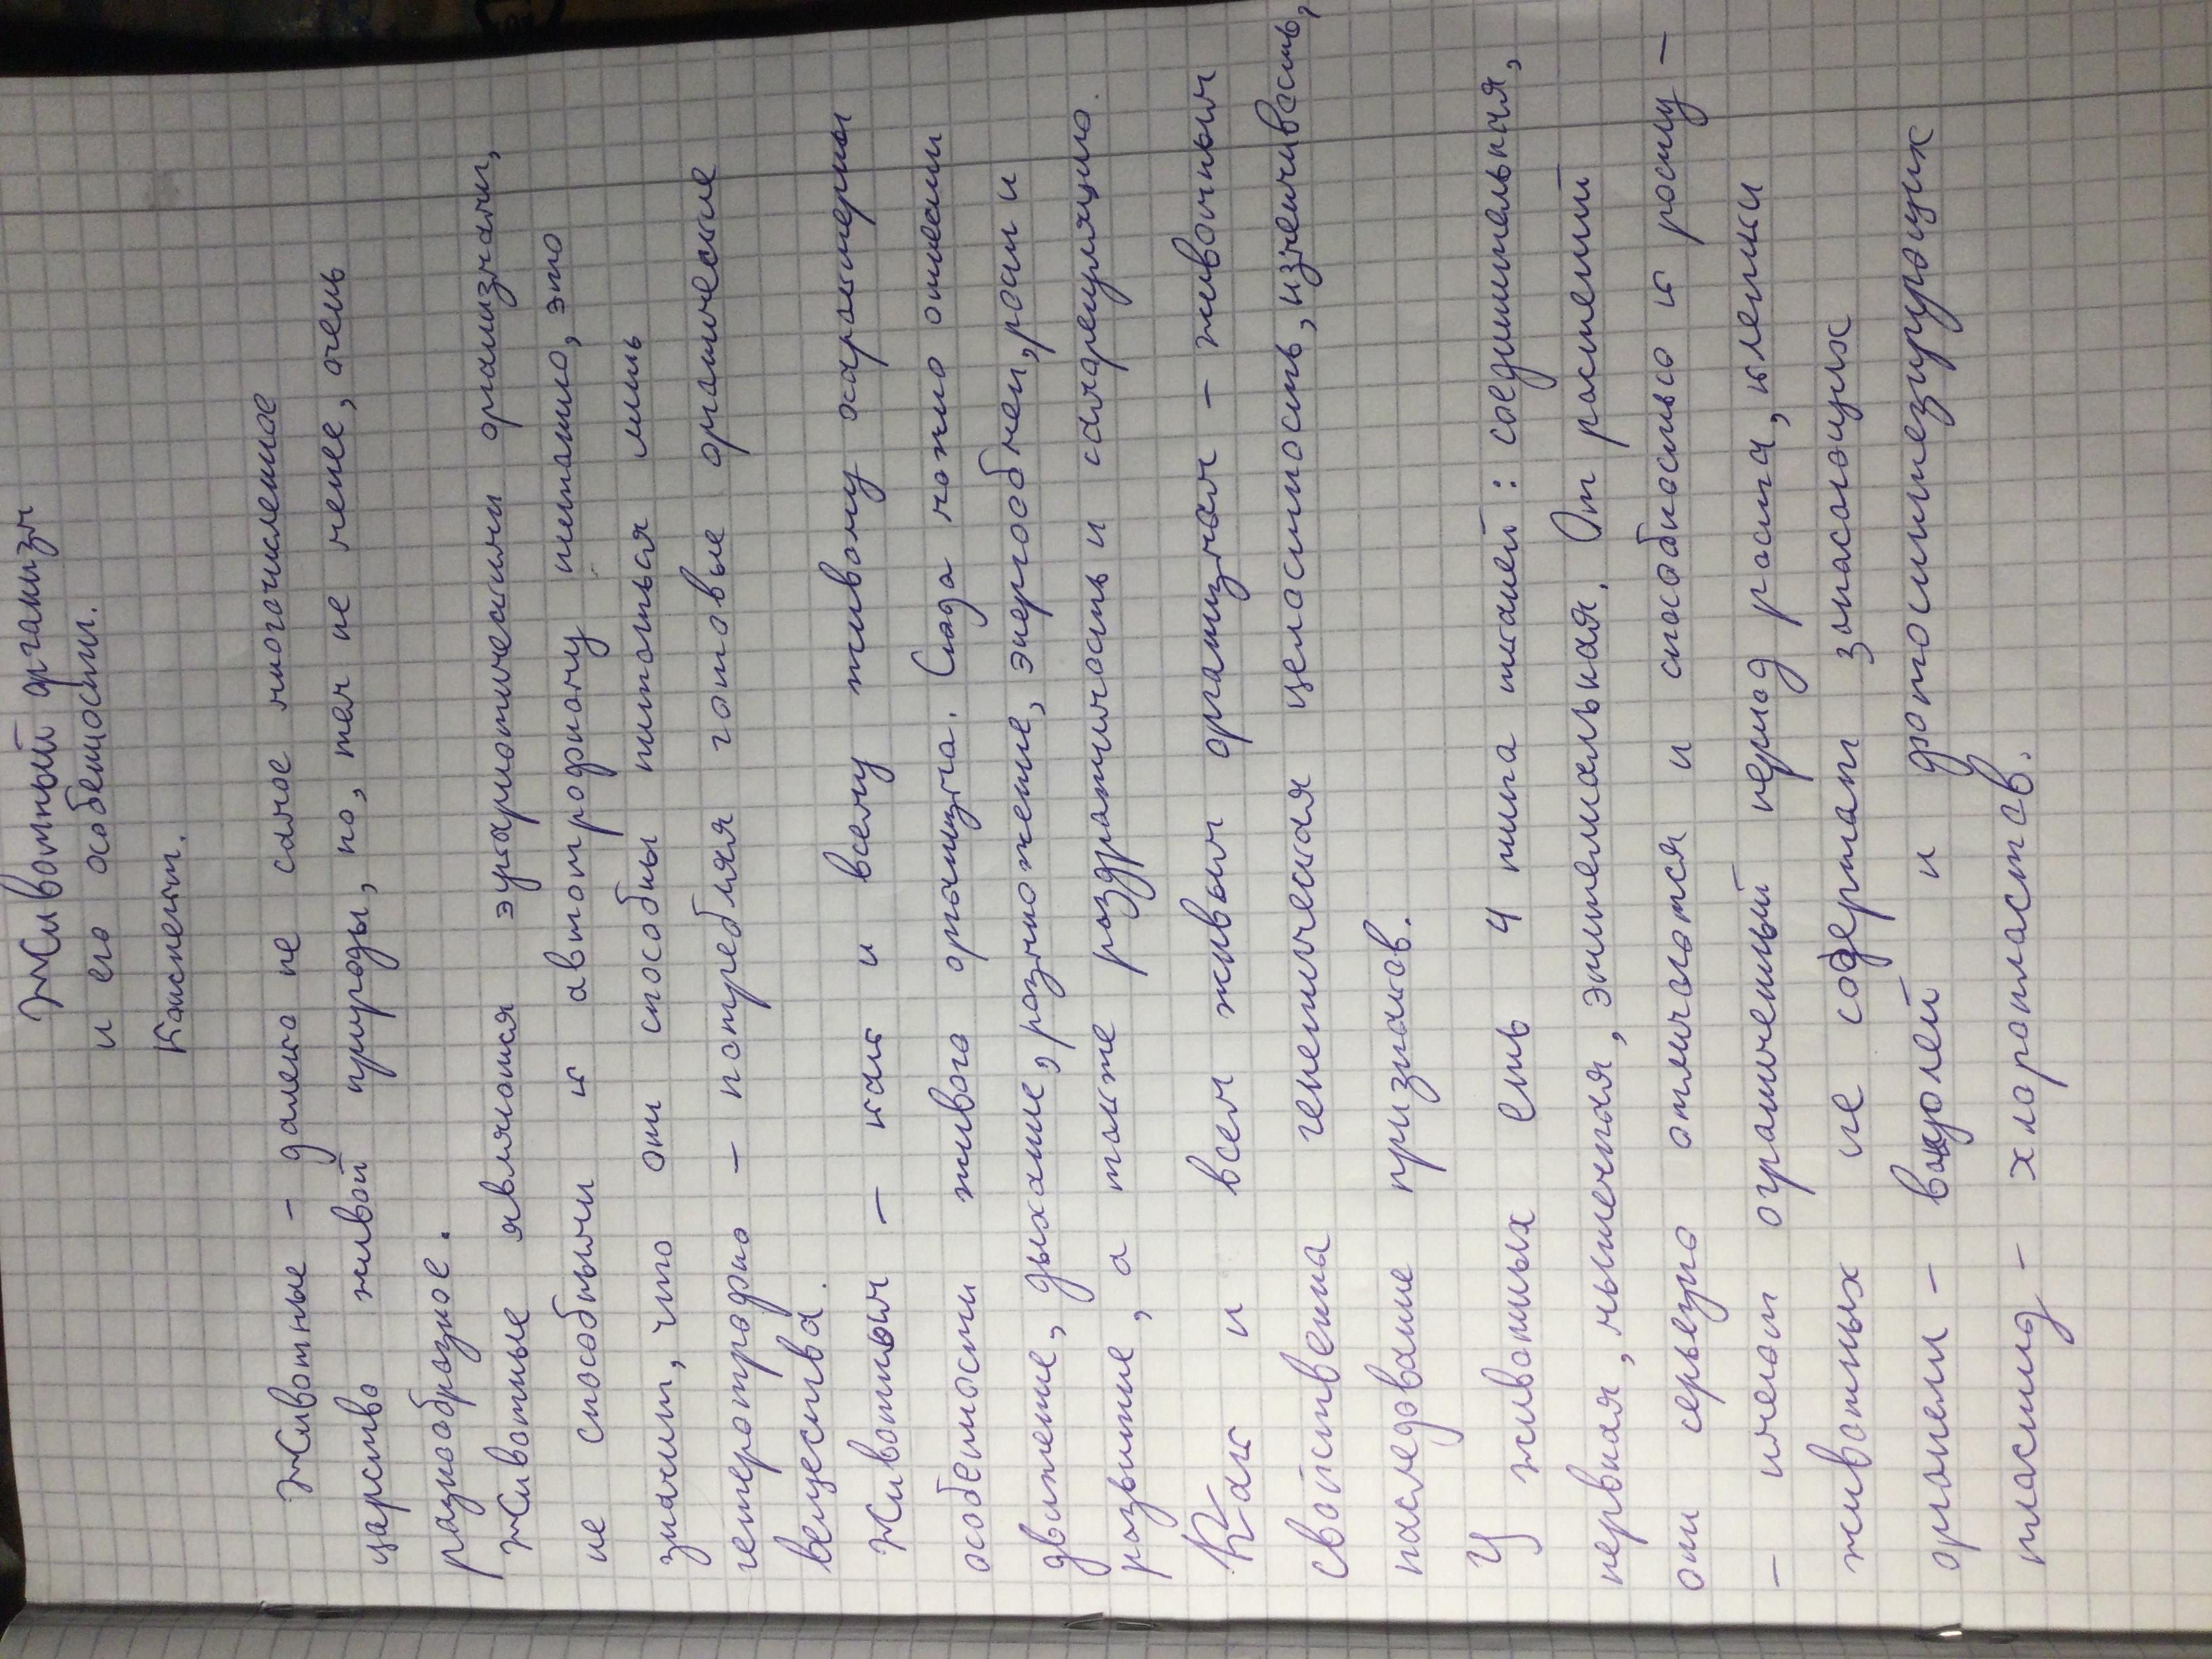 Животный организм
и его особенности.
Конспект.
Животные – далеко не самое многочисленное
царство живой природы, но, тем не менее, очень
разнообразное.
Животные являются эукариотическими организмами,
не способными к автотрофному питанию, это
значит, что они способны питаться лишь
гетеротрофно – потребляя готовые органические
вещества.
Животным – как и всему живому характерны
особенности живого организма. Сюда можно отнести
движение, дыхание, размножение, энергообмен, рост и
развитие, а также раздражимость и саморегуляцию.
Как и всем живым организмам – животным
свойственна генетическая целостность, изменчивость,
наследование признаков.
У животных есть 4 типа тканей: соединительная,
нервная, мышечная, эпителиальная. От растений
они серьезно отличаются и способностью к росту –
– имеют ограниченный период роста, клетки
животных не содержат запасающих
органелл – вакуолей и фотосинтезирующих
пластид – хлоропластов.